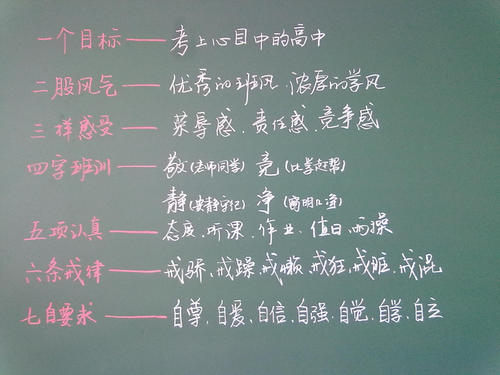 一个目标——考上心目中的高中
二股风气——优秀的班风、浓厚的学风
三样感受——荣辱感、责任感、竞争感
四字班训——敬(老师同学) 竞(比学赶帮)
静(安静守纪) 净(窗明几净)
五项认真——态度、听课、作业、值日、两操
六条戒律——戒骄、戒躁、戒懒、戒狂、戒脏、戒混
七自要求——自尊、自爱、自信、自强、自觉、自学、自立